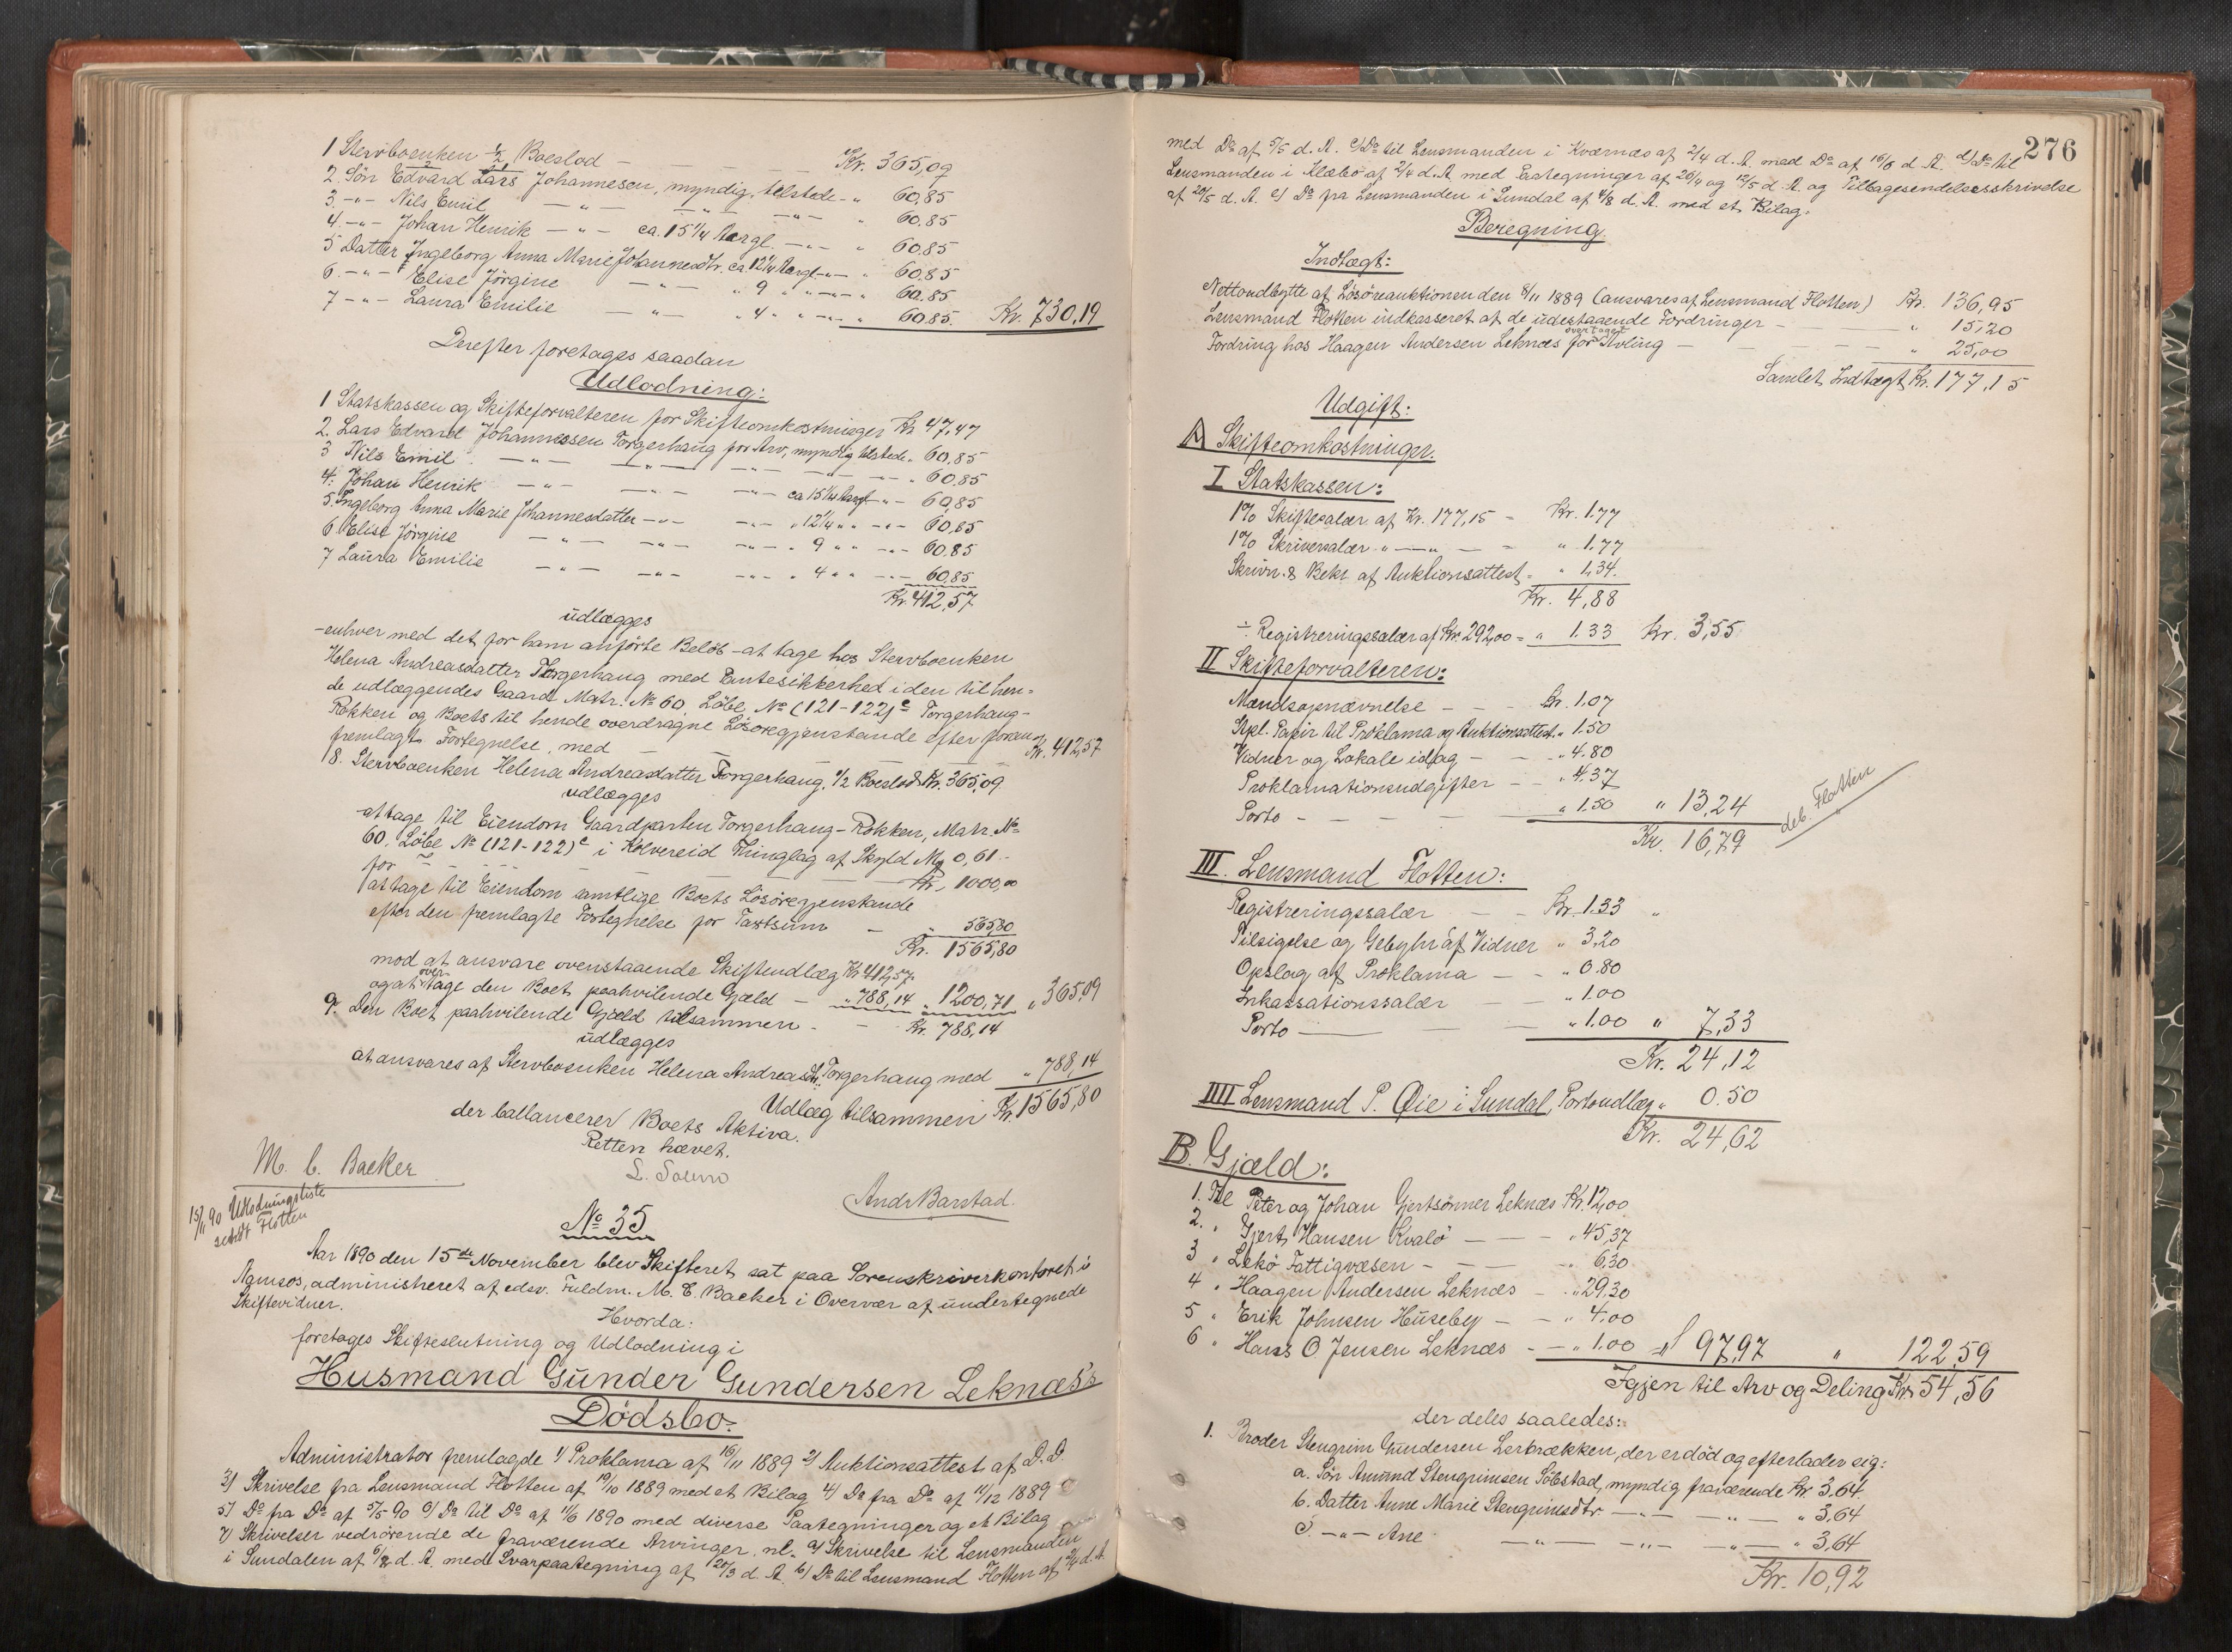 1 Stervboenken 1/2 Boeslod – Kr. 365,09
2. Søn Edvard Lars Johannesen, myndig, tilstede - " 60,85
3. -"- Nils Emil -"- -"- -"- " 60,85
4. -"- Johan Henrik -"- ca. 15 1/4 Aar gl. -"- " 60,85
5 Datter Ingeborg Anna Marie Johannesdtr. ca. 12 1/4 Aar gl -"- " 60,85
6. -"- Elise Jørgine -"- " 9 " " -"- " 60,85
7 -"- Laura Emilie -"- " 4 " " -"- " 60,85. Kr. 730,19
Derefter foretages saadan
Udlodning:
1 Statskassen og Skifteforvalteren for Skifteomkostninger Kr 47,47
2. Lars Edvard Johannessen Torgerhaug for Arv, myndig tilstede " 60,85
3 Nils Emil -"- -"- -"- " 60,85
4. Johan Henrik -"- -"- -"- ca 15 1/4 Aar gl -"- 60,85
5. Ingeborg Anna Marie Johannesdatter -"- -"- " 12 1/4 " " -"- 60,85
6 Elise Jørgine -"- -"- -"- " 9 " " -"- 60,85
7 Laura Emilie -"- -"- -"- " 4 " " -"- 60,85
Kr. 412,57
udlægges
-enhver med det for ham anførte Beløb - at tage hos Stervboenken
Helena Andreasdatter Torgerhaug med Pantesikkerhed i den til hen-
de udlæggendes Gaard Matr. No 60, Løbe No (121-122)c Torgerhaug-
Røkken og Boets til hende overdragne Løsøregjenstande efter foran
fremlagt Fortegnelse, med – – – Kr. 412,57
8. Stervboenken Helena Andreasdatter Torgerhaug, 1/2 Boeslod Kr. 365,09
udlægges
-at tage til Eiendom Gaardparten Torgerhaug-Røkken, Matr. No
60, Løbe No (121-122)c i Kolvereid Thinglag af Skyld Mk 0,61 -
for – – – Kr. 1000,00
at tage til Eiendom samtlige Boets Løsøregjenstande
efter den fremlagte Fortegnelse for Taxtsum – " 565,80
Kr. 1565,80
mod at ansvare ovenstaaende Skifteudlæg Kr 412,57
og at overtage den Boet paahvilende Gjæld – " 788,14 " 1200,71 " 365,09
9. Den Boet paahvilende Gjæld tilsammen - – Kr. 788,14
udlægges
at ansvares af Stervboenken Helena Andreasdtr. Torgerhaug med " 788,14
Udlæg tilsammen Kr. 1565,80
der ballancerer Boets Aktiva.
Retten hævet.
M. C. Backer
And. Barstad.
15/11 90 Udlodningsliste
sendt Flotten
No 35
Aar 1890 den 15de November blev Skifteret sat paa Sorenskriverkontoret i
Namsos, administreret af edsv. Fuldm. M. C. Backer i Overvær af undertegnede
Skiftevidner.
Hvorda:
foretages Skifteslutning og Udlodning i
Husmand Gunder Gundersen Leknæs's
Dødsbo.
Administrator fremlagde 1/ Proklama af 16/11 1889 2/ Auktionsattest af D.D.
3/ Skrivelse fra Lensmand Flotten af 19/10 1889 med et Bilag 4/ Do fra Do af 11/12 1889
5/ Do fra Do af 5/5 90 6/ Do til Do af 11/6 1890 med diverse Paategninger og et Bilag
7/ Skrivelser vedrørende de fraværende Arvinger, nl. a/ Skrivelse til Lensmanden
i Sundalen af 6/2 d. A. med Svarpaategning af 20/3 d. A. b/ Do til Lensmand Flotten af 2/4 d. A.
276
med Do af 5/5 d. A. c/ Do til Lensmanden i Kværnes af 2/4 d. A. med Do af 16/5 d. A. d/ Do til
Lensmanden i Klæbo af 2/4 d. A. med Paategninger af 26/4 og 12/5 d. A. og Tilbagesendelsesskrivelse
af 20/5 d. A. e/ Do fra Lensmanden i Sundal af 4/8 d. A. med et Bilag.
Beregning.
Indtægt:
Nettoudbytte af Løsøreauktionen den 8/11 1889 (ansvares af Lensmand Flotten) Kr. 136,95
Lensmand Flotten indkasseret af de udestaaende Fordringer – " 15,20
Fordring hos Haagen Andersen Leknæs for overtaget Avling – " 25,00
Samlet Indtægt Kr. 177,15
Udgift:
A Skifteomkostninger.
I Statskassen:
1% Skiftesalær af Kr. 177,15 = Kr. 1.77
1% Skriversalær " –"– = " 1.77
Skrivn. & Bekr. af Auktionsattest = " 1,34.
Kr. 4,88
÷ Registreringssalær af Kr. 292,00 = " 1.33 Kr. 3,55
II Skifteforvalteren:
Mandsopnævnelse – – Kr. 1.07
Stpl. Papir til Proklama og Auktionsattest " 1.50
Vidner og Lokale idag – – " 4.80
Proklamationsudgifter – – " 4.37
Porto – – – – " 1.50 " 13,24
Kr. 16,79
deb. Flotten
III. Lensmand Flotten:
Registreringssalær – – Kr. 1.33 "
Tilsigelse og Gebyhr af Vidner " 3,20
Opslag af Proklama – – " 0.80
Inkassationssalær – – " 1.00
Porto – – " 1.00 " 7,33
Kr. 24,12
IIII Lensmand P. Øie i Sundal, Portoudlæg " 0.50
Kr. 24,62
B. Gjæld:
1. Til Peter og Johan Gjertsønner Leknæs Kr. 12,00
2. " Gjert Hansen Kvalø – – – " 45,37
3 " Lekø Fattigvæsen – – – " 6,30
4 " Haagen Andersen Leknæs – " 29.30
5 " Erik Johnsen Huseby – – " 4,00
6 " Hans O Jensen Leknæs - – " 1.00 " 97,97 " 122,59
Igjen til Arv og Deling Kr. 54,56
der deles saaledes:
1. Broder Stengrim Gundersen Lerbrækken, der er død og efterlader sig:
a. Søn Amund Stengrimsen Søbstad, myndig fraværende Kr 3,64
b. Datter Anne Marie Stengrimsdtr. –"– –"– " 3,64
c. -"- Ane –"– –"– –"– " 3,64
Kr. 10,92